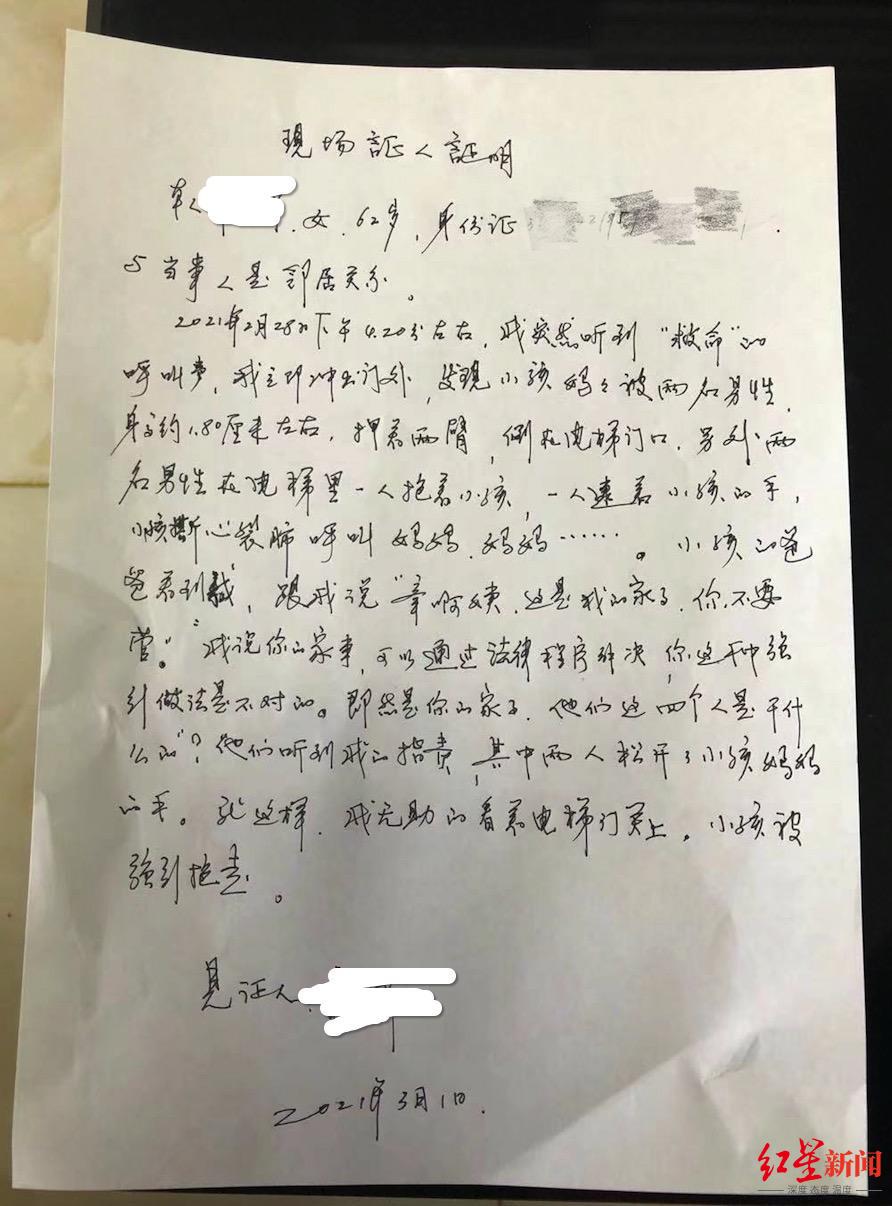 現场証人証明
本人 女.62岁,身份证
与当事人是邻居关系。
2021年2月28日下午4.20分左右,我突然听到"救命"的
呼叫声,我立即冲出门外,发现小孩妈妈被两名男性,
身高约1.80厘米左右,押着两臂,倒在电梯门口.另外两
名男性在电梯里一人抱着小孩,一人逮着小孩的手,
小孩撕心裂肺呼叫妈妈.妈妈……。小孩的爸
爸看到我,跟我说"章啊姨.这是我的家事.你不要
管。"我说你的家事,可以通过法律程序解决,你这种强
引做法是不对的。即然是你的家事.他们这四个人是干什
么的"?他们听到我的指责,其中两人松开了小孩妈妈
的手。就这样.我无助的看着电梯门关上。小孩被
强引抱走。
见证人
2021年3月1日.
红星新闻
深度 态度 温度